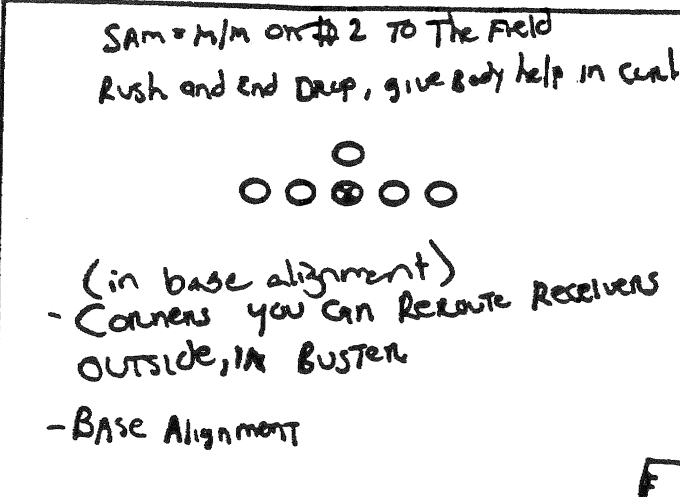 SAM = M/M on # 2 To The Field
Rush and End Drop, give Body help in Curl
(in base alignment)
- Corners you can Reroute Receivers
OUTSIDE, IN BUSTER
- BASE Alignment
F